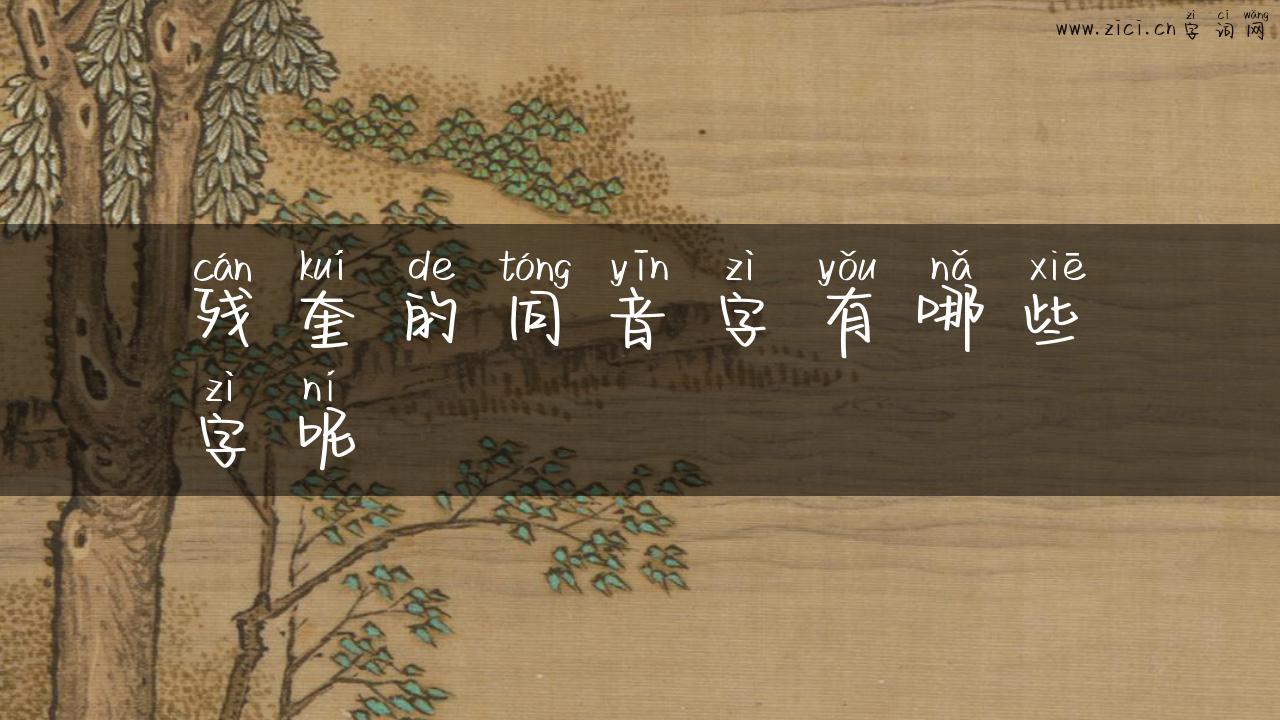 zì cí wǎng
www.zici.cn 字词网
cán kuí de tóng yīn zì yǒu nǎ xiē
残奎的同音字有哪些
zì ní
字呢